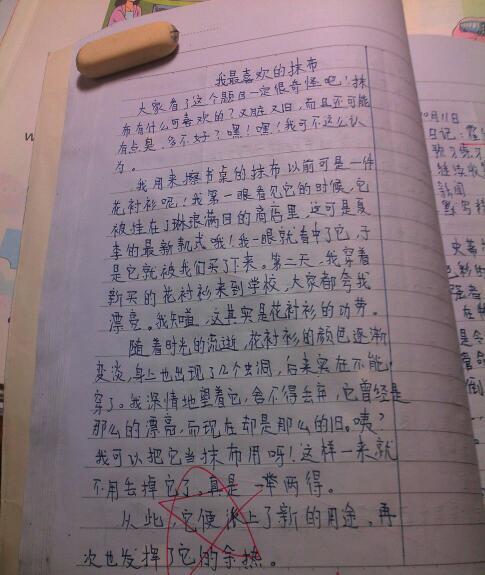 我最喜欢的抹布
大家看了这个题目一定很奇怪吧！抹
布有什么可喜欢的？又脏又旧，而且还可能
有点臭，多不好？嘿！嘿！我可不这么认
为。
我用来擦书桌的抹布以前可是一件
花衬衫呢！我第一眼看见它的时候，它
被挂在了琳琅满目的商店里，这可是夏
季的最新款式哦！我一眼就看中了它，于
是它就被我们买了下来。第二天，我穿着
新买的花衬衫来到学校，大家都夸我
漂亮。我知道，这其实是花衬衫的功劳。
随着时光的流逝，花衬衫的颜色逐渐
变淡，身上也出现了几个虫洞，后来实在不能
穿了。我深情地望着它，舍不得丢弃，它曾经是
那么的漂亮，而现在却是那么的旧。咦？
我可以把它当抹布用呀！这样一来就
不用丢掉它了，真是一举两得。
从此，它便派上了新的用途，再
次也发挥了它的余热。
10月11日
日记：
新闻